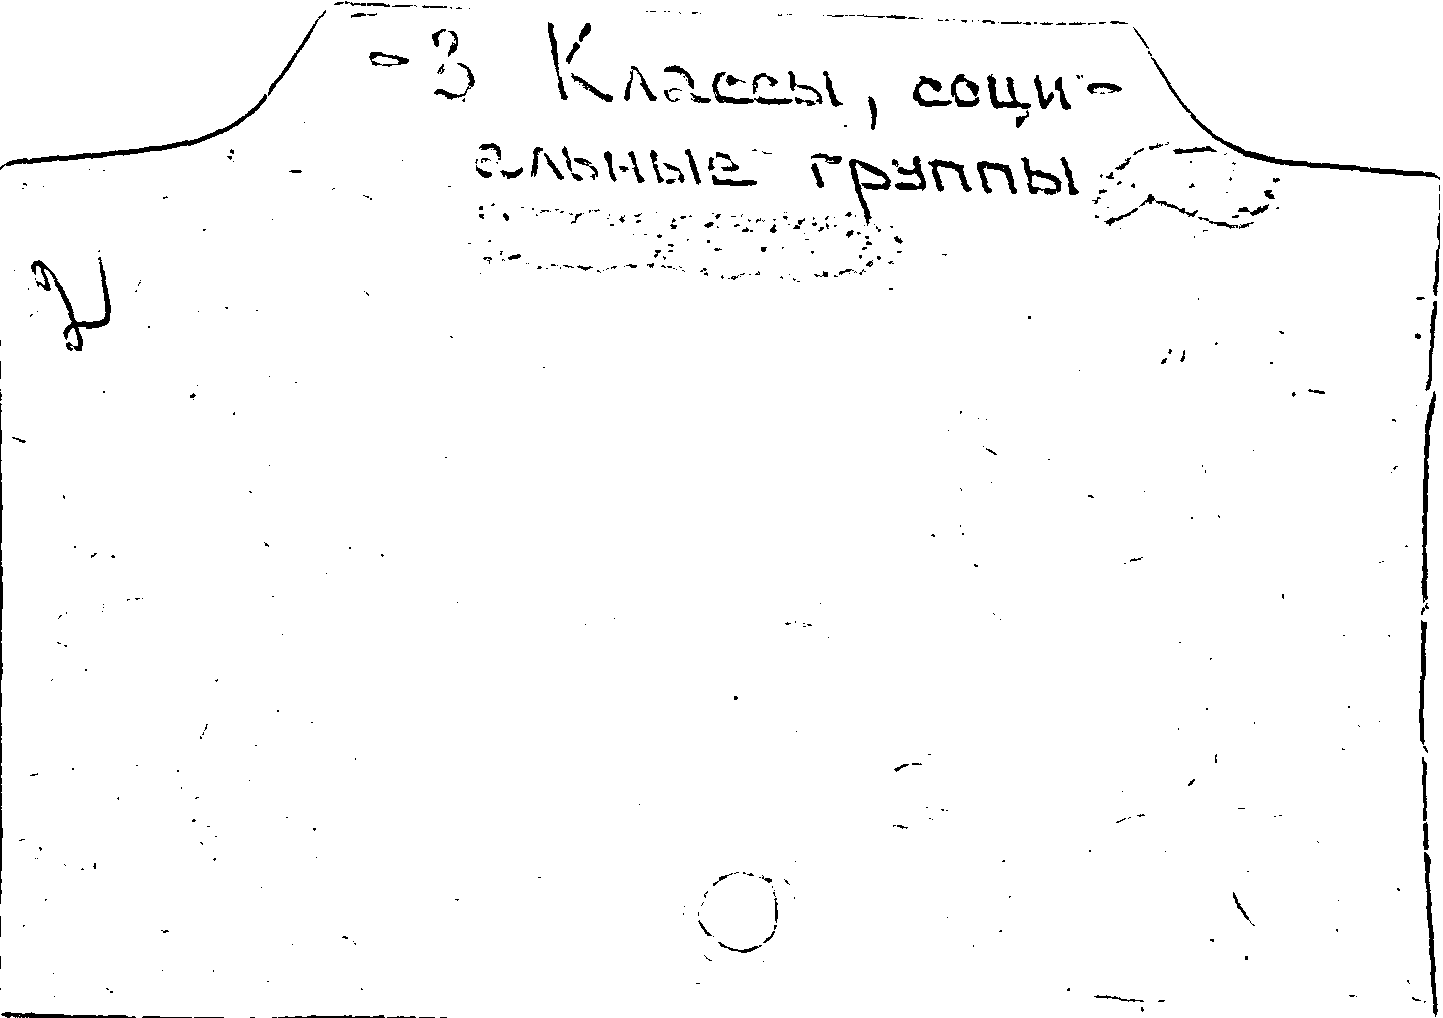 -3 Классы, соци-
альные группы